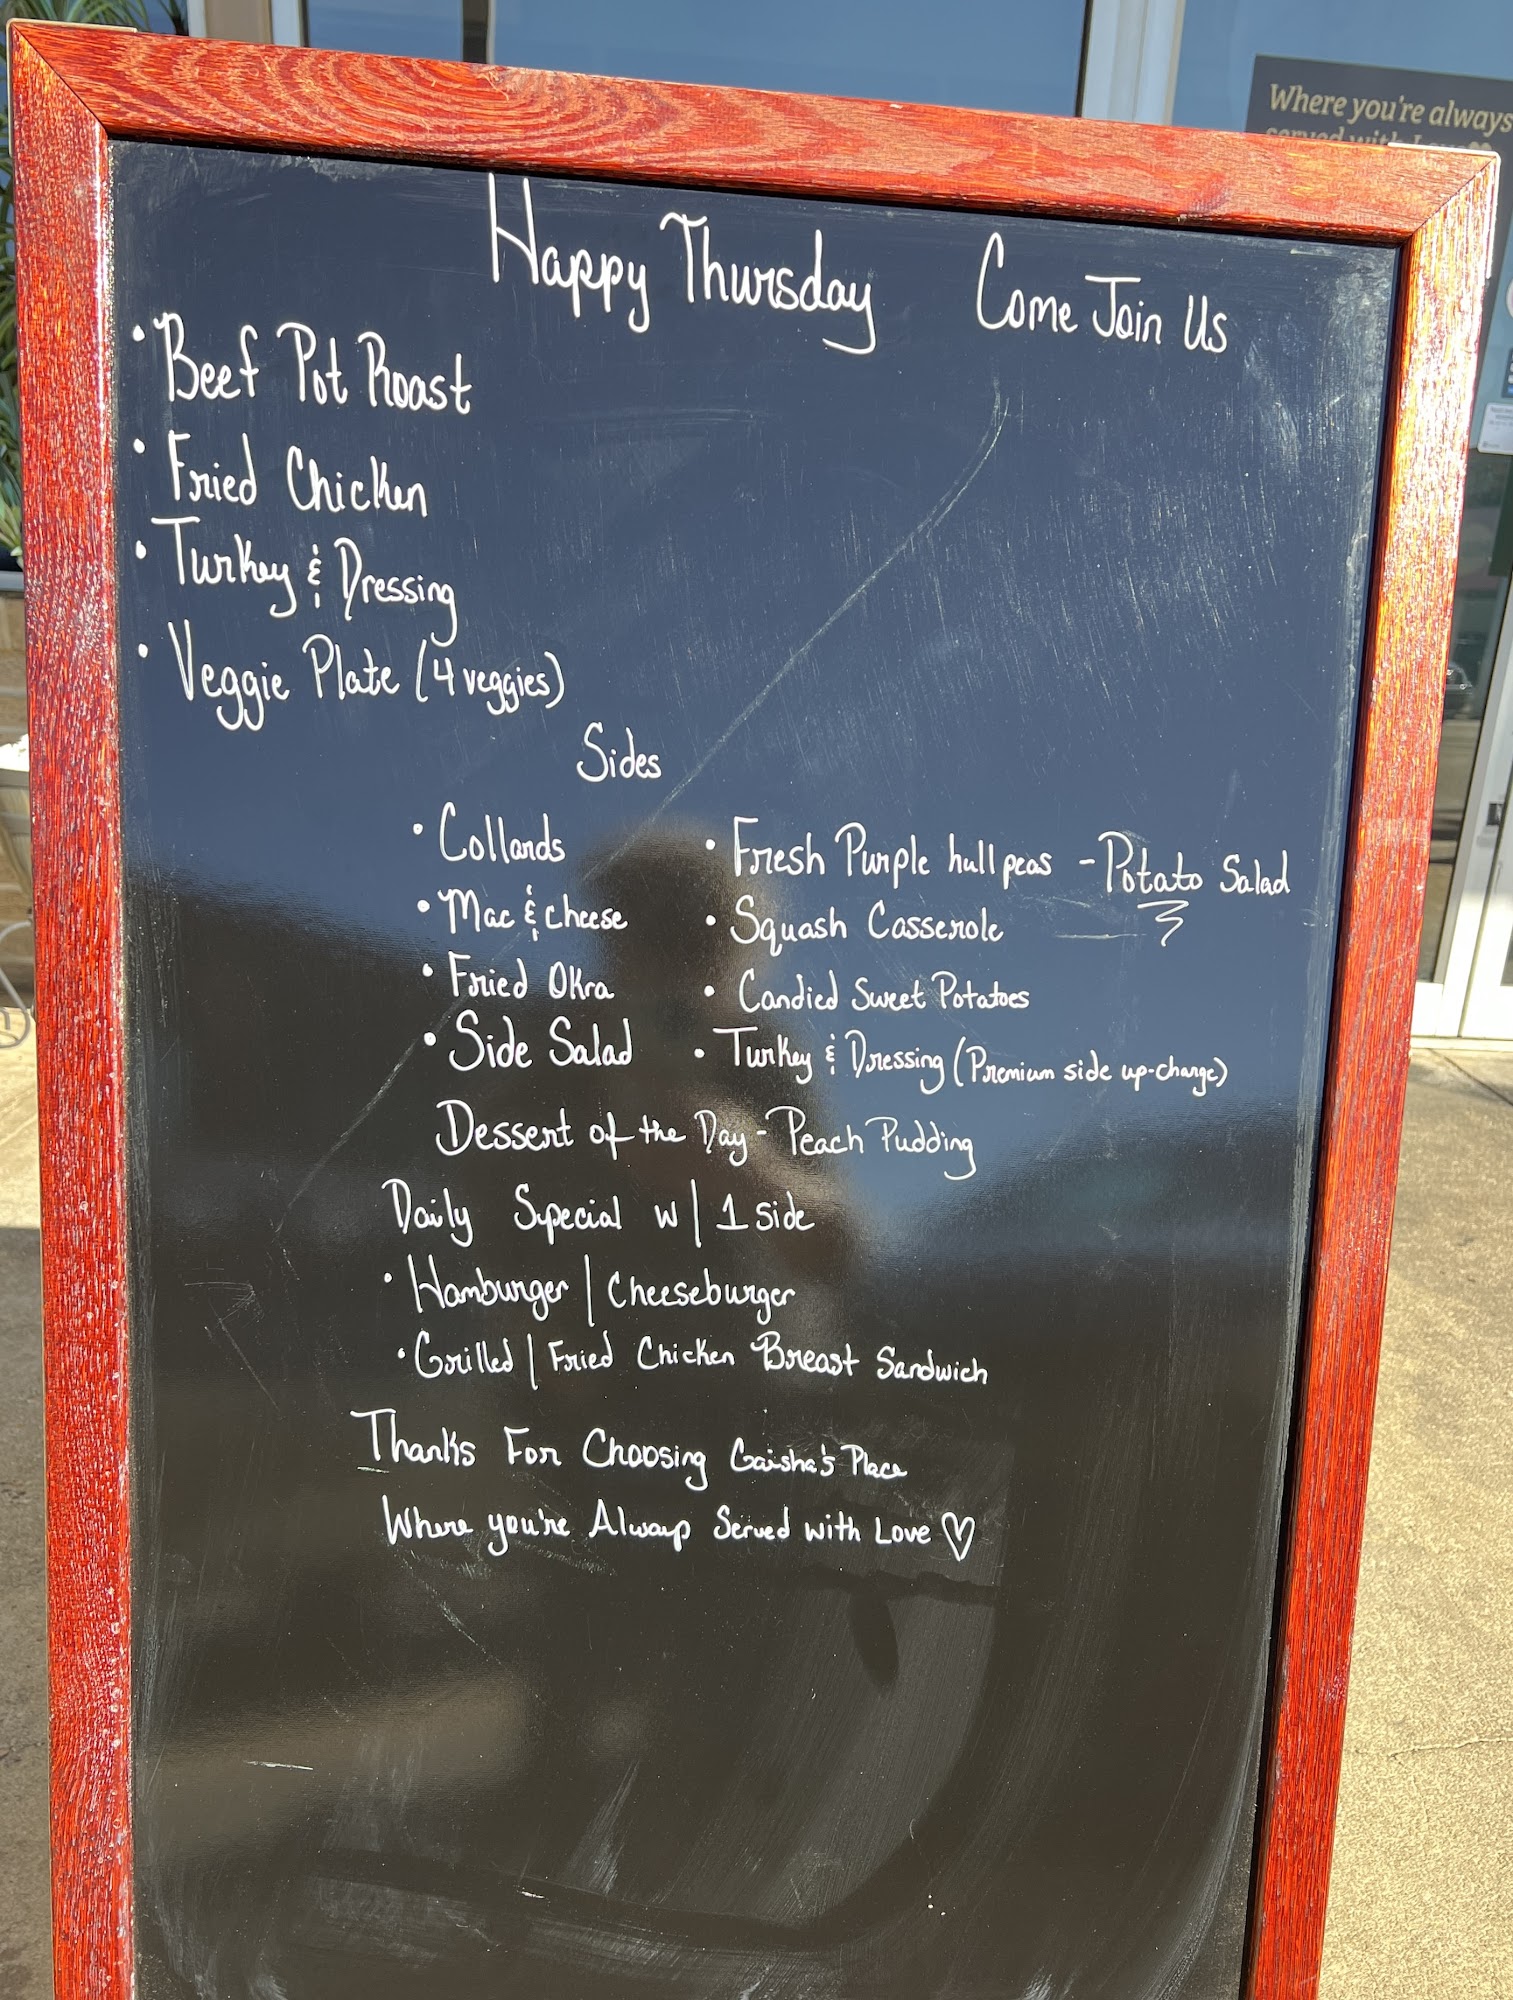 Where you're always
served with Love
Happy Thursday Come Join Us
• Beef Pot Roast
• Fried Chicken
• Turkey & Dressing
• Veggie Plate (4 veggies)
Sides
• Collards
• Mac & cheese
• Fried Okra
• Side Salad
• Fresh Purple hull peas - Potato Salad
• Squash Casserole
• Candied Sweet Potatoes
• Turkey & Dressing (Premium side up-charge)
Dessert of the Day - Peach Pudding
Daily Special w/ 1 side
• Hamburger / Cheeseburger
• Grilled / Fried Chicken Breast Sandwich
Thanks For Choosing Gaisha's Place
Where you're Always Served with Love ♡